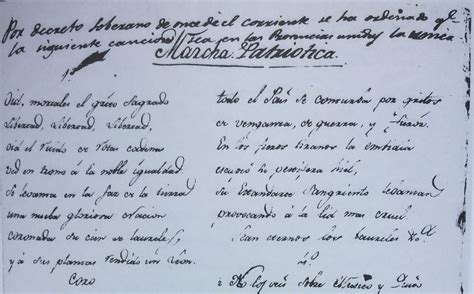 Por decreto soberano de once de el corriente se ha ordenado qe
la siguiente cancion sea en las Provincias unidas la unica
Marcha Patriotica.
1º
Oid, mortales el grito Sagrado
Libertad, Libertad, Libertad,
oid el ruido de rotas cadenas
ved en trono á la noble igualdad
se levanta en la faz de la tierra
una nueva gloriosa Nacion
coronada su cien de laureles,
y á sus plantas rendido un Leon.
Coro
todo el Pais se conturba por gritos
de venganza, de guerra, y furor.
En los fieros tiranos la embidia
escupió su pestifera hiel,
su Estandarte Sangriento levantan
provocando á la lid mas cruel.
Sean eternos los laureles &.a
4º
Mexico y Quito